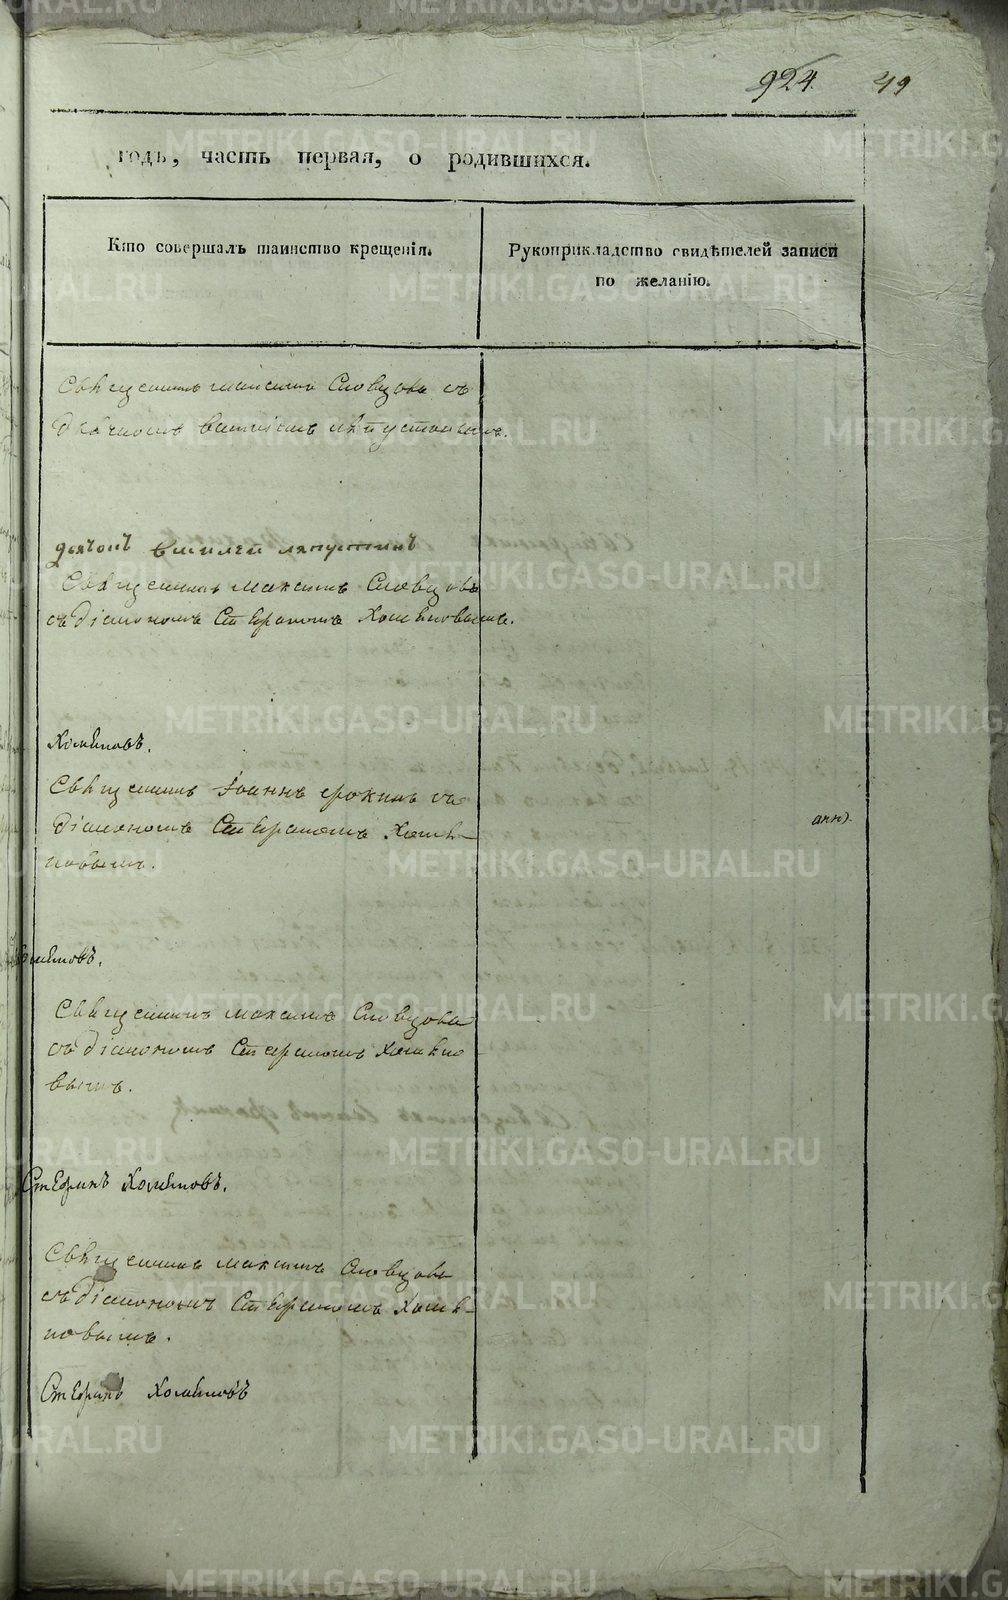 924. 49
годъ, часть первая, о родившихся.
Кто совершалъ таинство крещенія.
Рукоприкладство свидѣтелей записи
по желанію.
Священникъ Максимъ Словцовъ съ
дьячкомъ Василіемъ Ляпустинымъ.
дьячокъ Василей Ляпустинъ
Священникъ Максимъ Словцовъ
съ діакономъ Стефаномъ Хомяковымъ.
Хомяковъ.
Священникъ Іоаннъ съ
діакономъ Стефаномъ Хомя-
ковымъ.
Хомяковъ.
Священникъ Максимъ Словцовъ
съ діакономъ Стефаномъ Хомяко
вымъ.
Стефанъ Хомяковъ.
Священникъ Максимъ Словцовъ
съ діакономъ Стефаномъ Хомя-
ковымъ.
Стефанъ Хомяковъ
METRIKI.GASO-URAL.RU